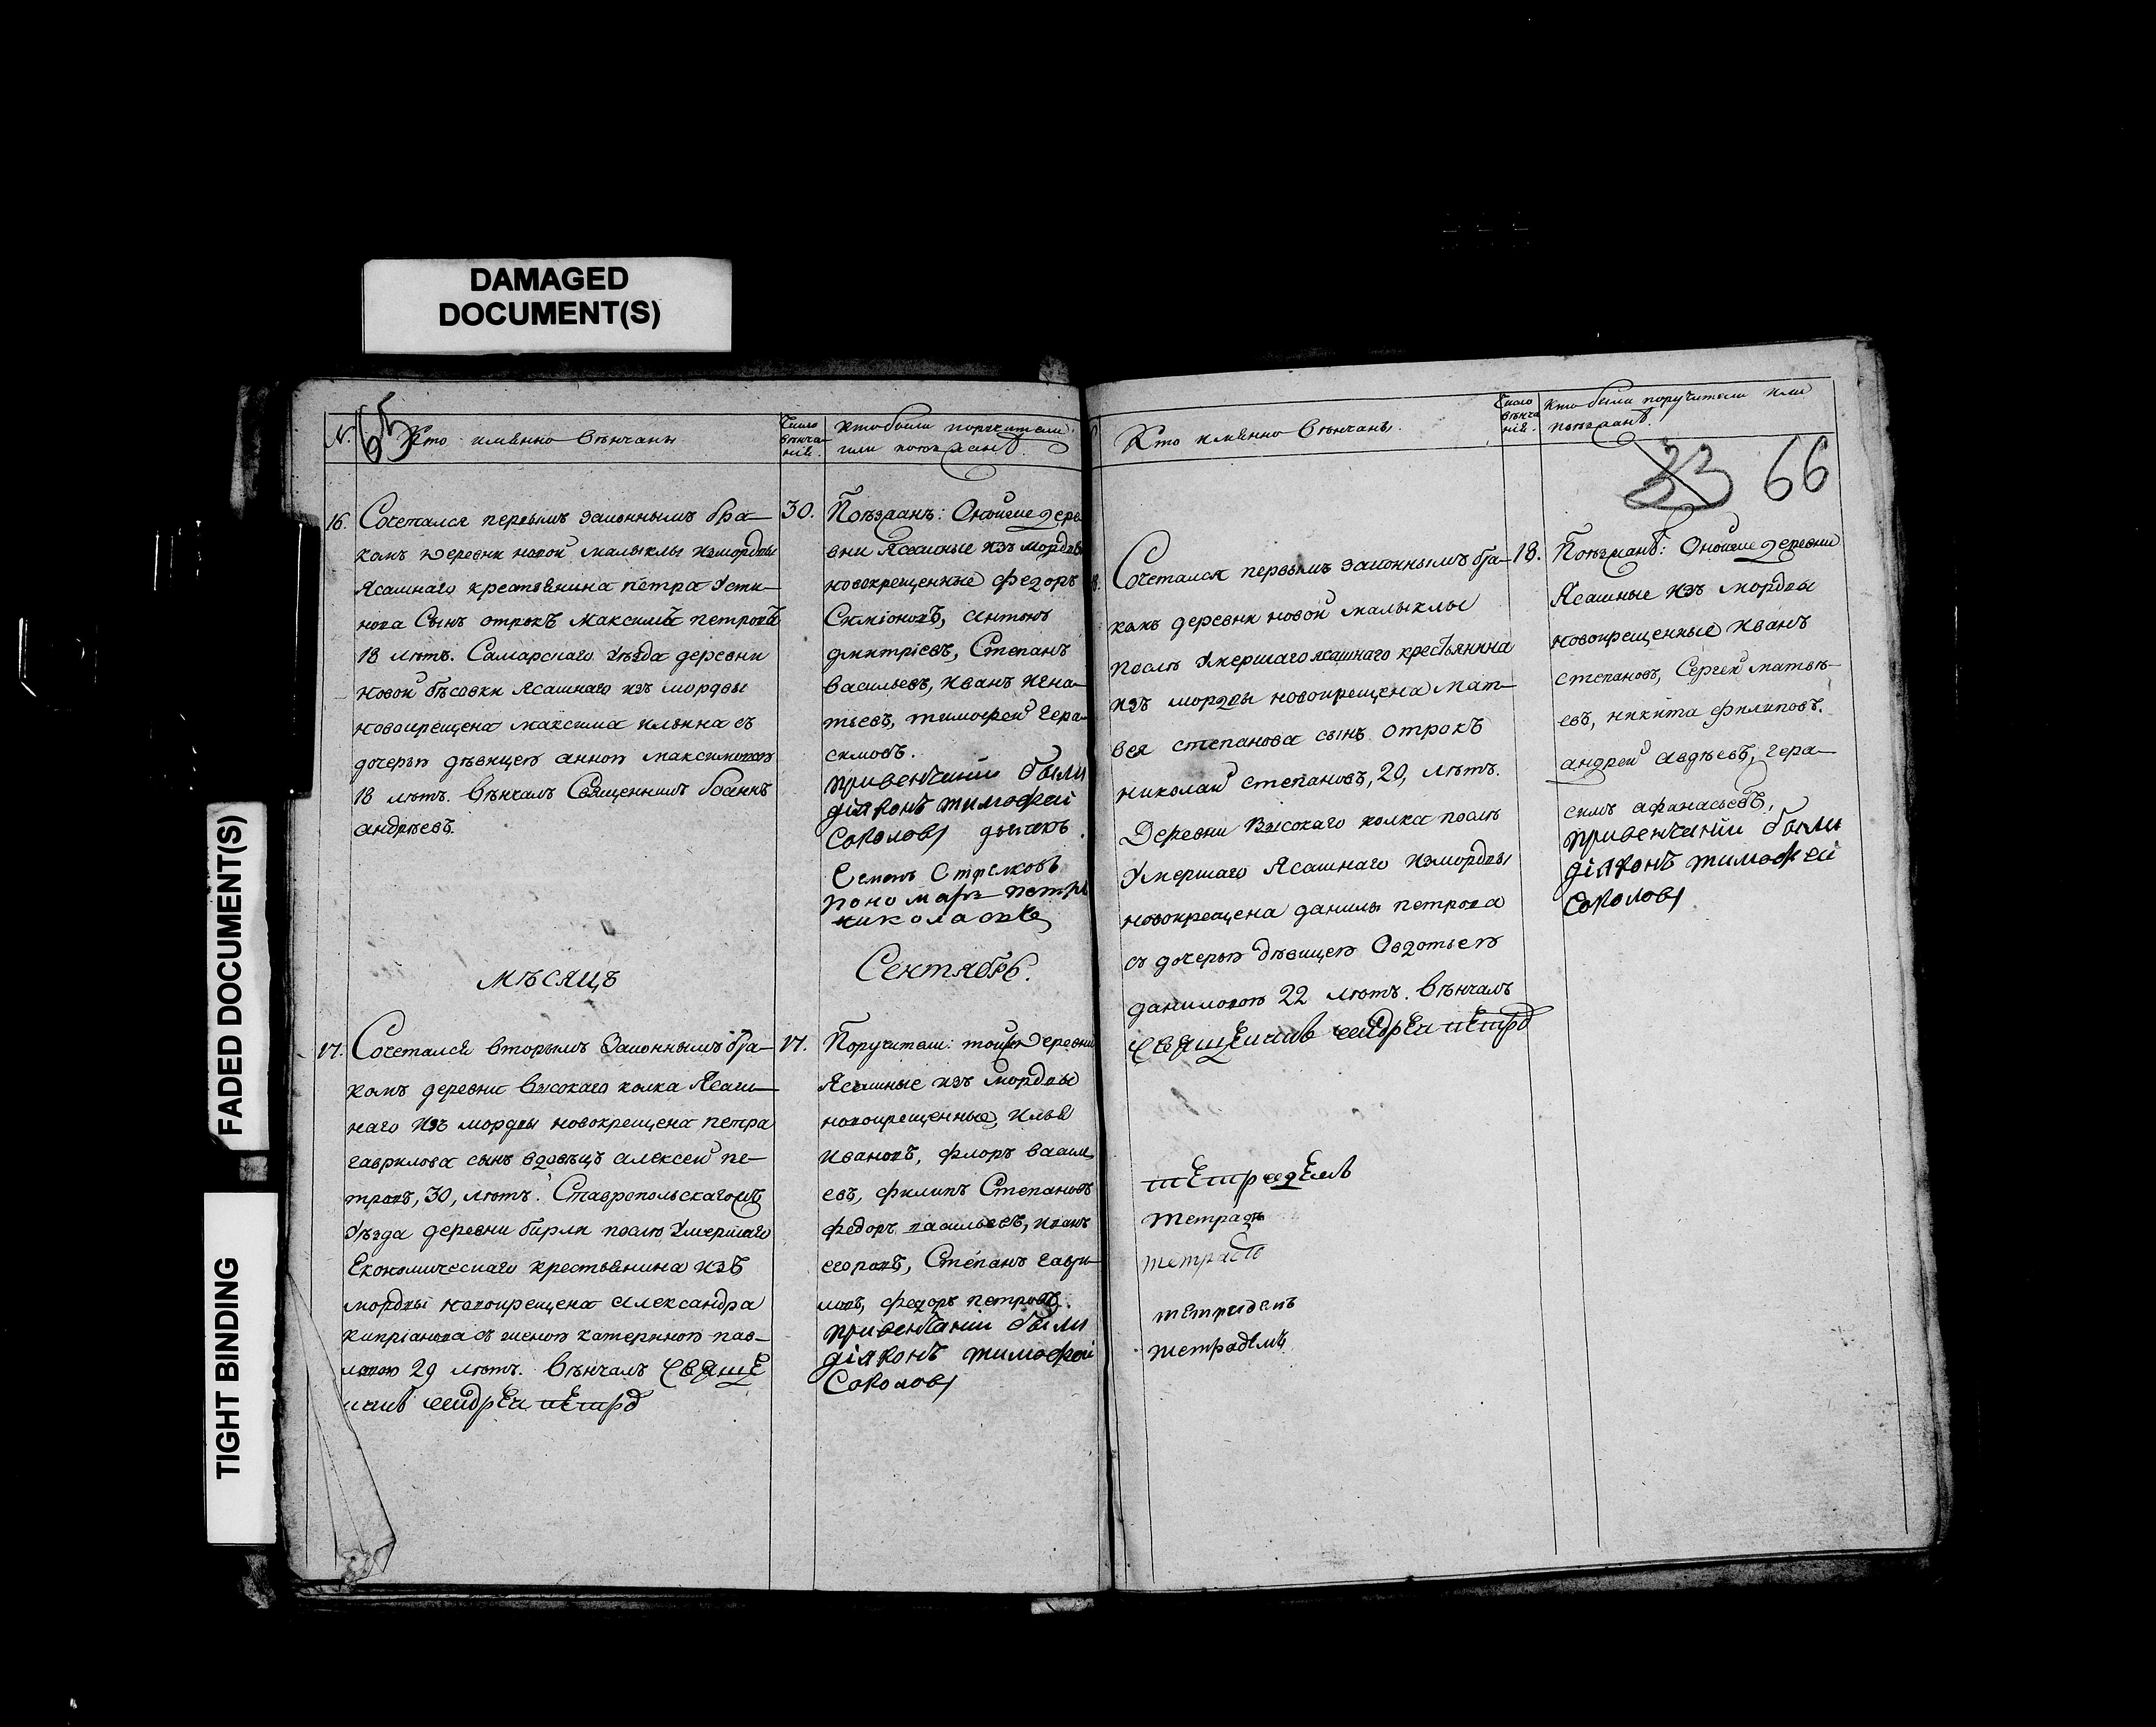 DAMAGED
DOCUMENT(S)
FADED DOCUMENT(S)
TIGHT BINDING
65
№. Кто имянно венчаны
Число венчанiя.
кто были поручители
или поезжанѣ.
16. Сочетался первымъ законнымъ бра-
комъ деревни новой малыклы измордвы
Ясашнаго крестьянина петра Усти-
нова Сынъ отрокъ максимъ петровъ
18 лѣтъ. Самарскаго Уѣзда деревни
новой бѣсовки Ясашнаго изъ мордвы
новокрещена максима ильина съ
дочерью дѣвицею анною максимовою
18 лѣтъ. Вѣнчалъ Священникъ Iоаннъ
андрѣевъ.
30. Поѣзжанѣ: Оной же дере
вни Ясашные изъ мордвы
новокрещенные федоръ
Симiоновъ, антонъ
дмитрiевъ, Степанъ
васильевъ, иванъ игна-
тьевъ, тимофей гера-
симовъ.
привенчанiи были
дiяконъ тимофеи
Соколовъ дьячокъ
Семенъ Стрелковъ
пономарь петръ
николаевъ
мѣсяцъ Сентябрь.
17. Сочетался вторымъ Законнымъ бра-
комъ деревни высокаго колка Ясаш-
наго изъ мордвы новокрещена петра
гаврилова сынъ вдовецъ алексей пе-
тровъ, 30, лѣтъ. Ставропольскагожъ
Уѣзда деревни бирли послѣ Умершаго
Економическаго крестьянина изъ
мордвы новокрещена александра
кипрiанова съ женою катериною пав-
ловою 29 лѣтъ. Вѣнчалъ Свяще
никъ андреи петровъ
17. Поручители: той же деревни
Ясашные изъ мордвы
новокрещенные, илья
ивановъ, флоръ васил
евъ, филипъ Степановъ
федоръ васильевъ, иванъ
егоровъ, Степанъ гаври-
ловъ, федоръ петровъ.
привенчанiи были
дiяконъ тимофеи
Соколовъ
Кто имянно вѣнчаны.
Число вѣнчанiя.
кто были поручители или
поѣзжанѣ.
23 66
Сочетался первымъ законнымъ бра-
комъ деревни новой малыклы
послѣ Умершаго ясашнаго крестьянина
изъ мордвы новокрещена мат-
вея степанова сынъ отрокъ
николай степановъ, 20, лѣтъ.
Деревни Высокаго колка послѣ
Умершаго Ясашнаго измордвы
новокрещена данилы петрова
съ дочерью дѣвицею Овдотьею
даниловою 22 лѣтъ. Вѣнчалъ
Священникъ андреи петровъ
18. Поѣзжанѣ: Оной же деревни
Ясашные изъ мордвы
новокрещенные иванъ
степановъ, Сергей матвѣ-
евъ, никита филиповъ.
андрей авдѣевъ, гера-
симъ афанасьевъ,
привенчанiи были
дiяконъ тимофеи
Соколовъ
тетрадемъ
тетрадь
тетрадь
тетрадемъ
тетрадемъ